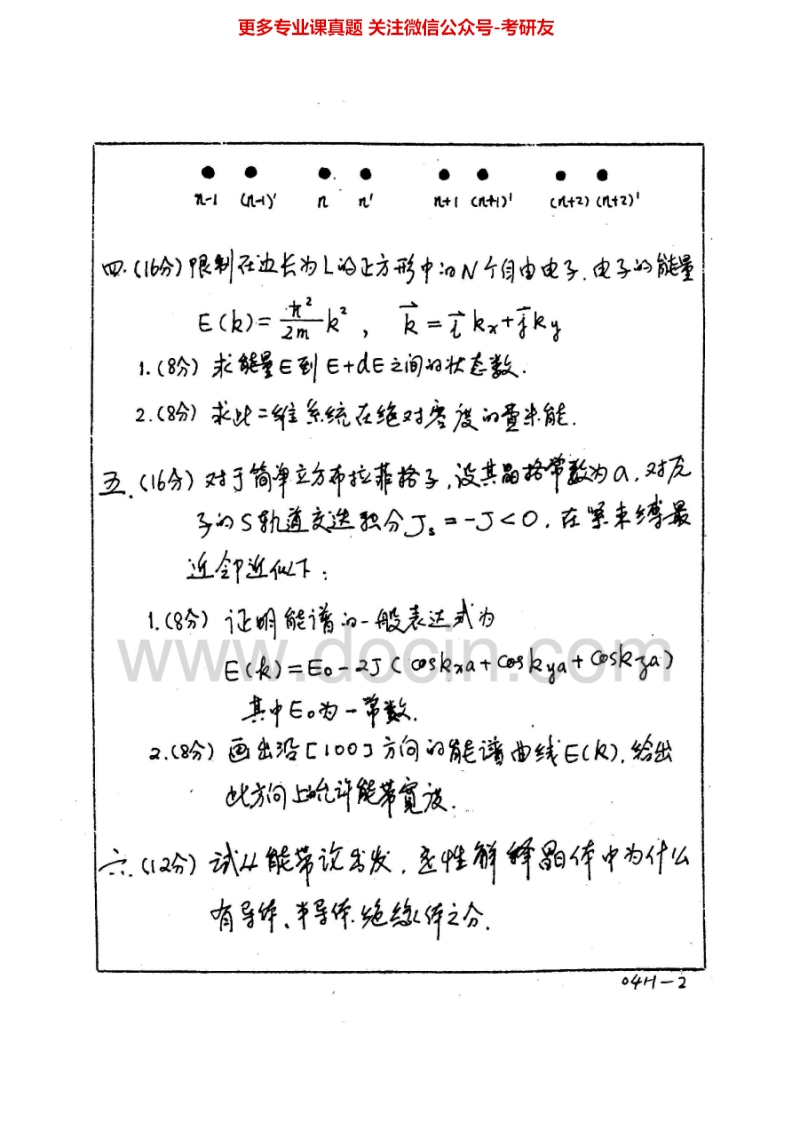 更多专业课真题 关注微信公众号-考研友
n-1 (n-1)' n n' n+1 (n+1)' (n+2) (n+2)'
四.(16分)限制在边长为L的正方形中的N个自由电子.电子的能量
E(k)=ħ²/2m k², k⃗=i⃗kx+j⃗ky
1.(8分) 求能量E到E+dE之间的状态数.
2.(8分) 求此二维系统在绝对零度的费米能.
五.(16分)对于简单立方布拉菲格子,设其晶格常数为a,对原
子的S轨道交迭积分Js=-J<0,在紧束缚最
近邻近似下:
1.(8分) 证明能谱的一般表达式为
E(k)=E₀-2J(coskxa+coskya+coskza)
其中E₀为一常数.
2.(8分) 画出沿[100]方向的能谱曲线E(k),给出
此方向上允许能带宽度.
六.(12分) 试从能带论出发,定性解释晶体中为什么
有导体、半导体、绝缘体之分.
www.docin.com
04H-2